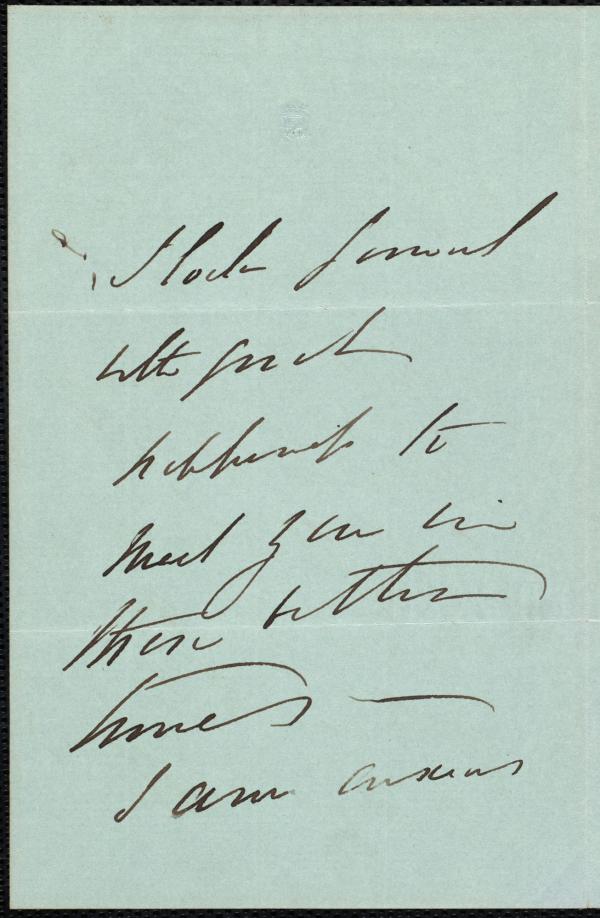 I look forward
with great
happiness to
meet you in
these better
times —
I am anxious